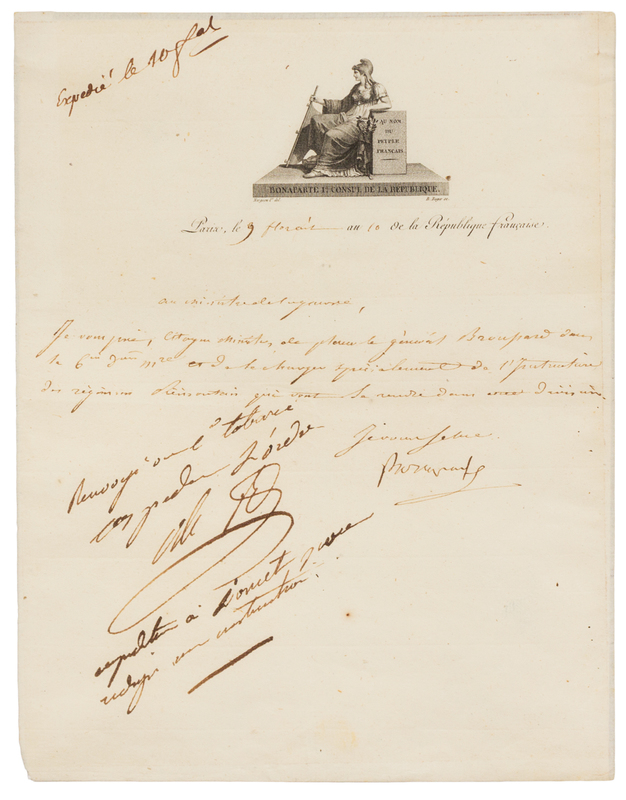 Expedié le 10 fal
AU NOM
DU
PEUPLE
FRANÇAIS
BONAPARTE 1er CONSUL DE LA REPUBLIQUE.
B. Roger sc.
Paris, le 9 floréal au 10 de la République française.
au ministre de la guerre,
Je vous prie, Citoyen Ministre, de placer le général Broussard dans
la 6me d'on mre et de le charger spécialement de l'Instruction
des régimens Piémontais qui vont se rendre dans cette division.
Je vous salue.
Bonaparte
Renvoyé
expedier l'ordre
al B
à Doucet pour
rediger une instruction.